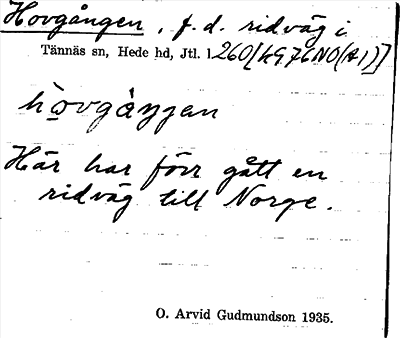 Hovgången, f.d. ridväg i
Tännäs sn, Hede hd, Jtl. l. 260[kg 76NO(A1)]
hovgåŋgan
Här har förr gått en
ridväg till Norge.
O. Arvid Gudmundson 1935.